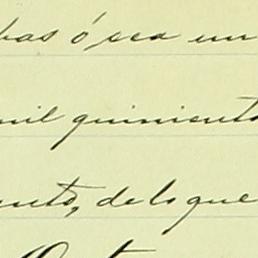 bas ó sea un
mil quinientos
ento, de lo que